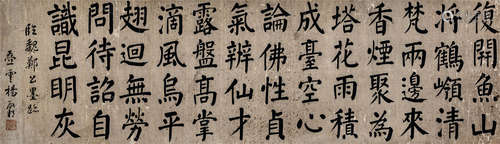 復開魚山
將鶴嶺清
梵兩邊來
香煙聚為
塔花雨積
成臺空心
論佛性貞
氣辨仙才
露盤高掌
滴風烏平
翅迴無勞
問待詔自
識昆明灰
臨魏鄭公墨跡
雲楊